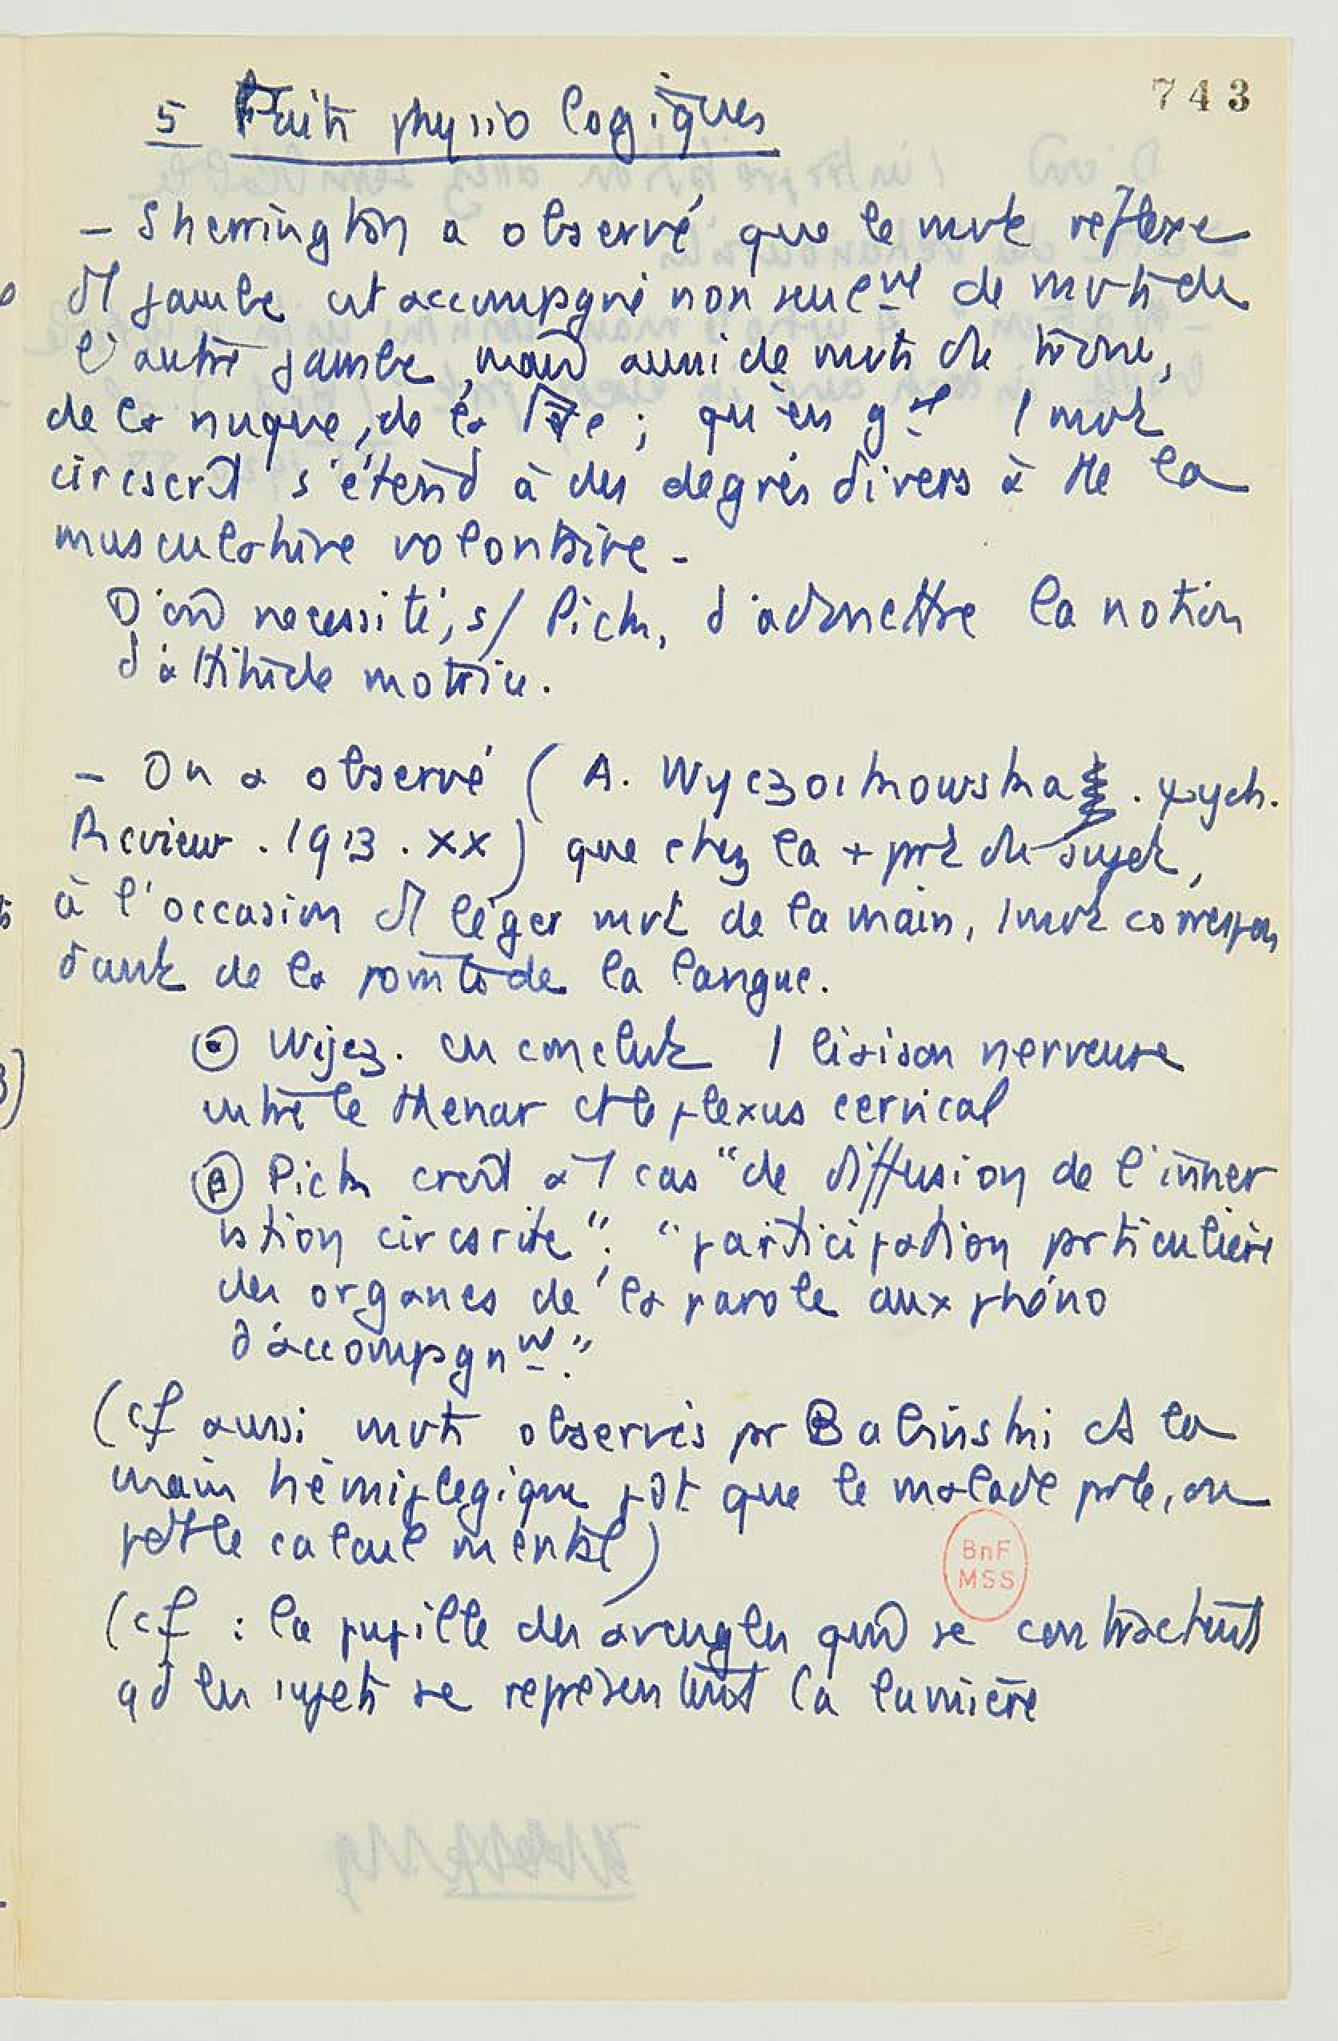 743
5 Faits physiologiques
- Sherrington a observé que le mvt réflexe
d'1 jambe est accompagné non seulemt de mvts de
l'autre jambe, mais aussi de mvts du torse,
de la nuque, de la ; qu'en gal 1 mvt
circscrit s'étend à des degrés divers à tte la
musculature volontaire -
D'où nécessité, s/ Pick, d'admettre la notion
d'attitude motrice.
- On a observé (A. Wyczoikowska . psych.
Review . 1913 . XX) que chez la + prt du sujet,
à l'occasion d'1 léger mvt de la main, 1 mvt correspon
dant de la pointe de la langue.
Wijcz. en conclut 1 liaison nerveuse
entre le thenar et le plexus cervical
Pick croit à 1 cas "de diffusion de l'inner
vation circscrite" ; "participation prticulière
des organes de la parole aux phéno
d'accompgnmt."
(cf aussi mvts observés pr Babinski ds la
main hémiplégique pdt que le malade prle, ou
pdt le calcul mental)
BnF
MSS
(cf : la pupille des aveugles qui se contractent
qd les sujets se représentent la lumière